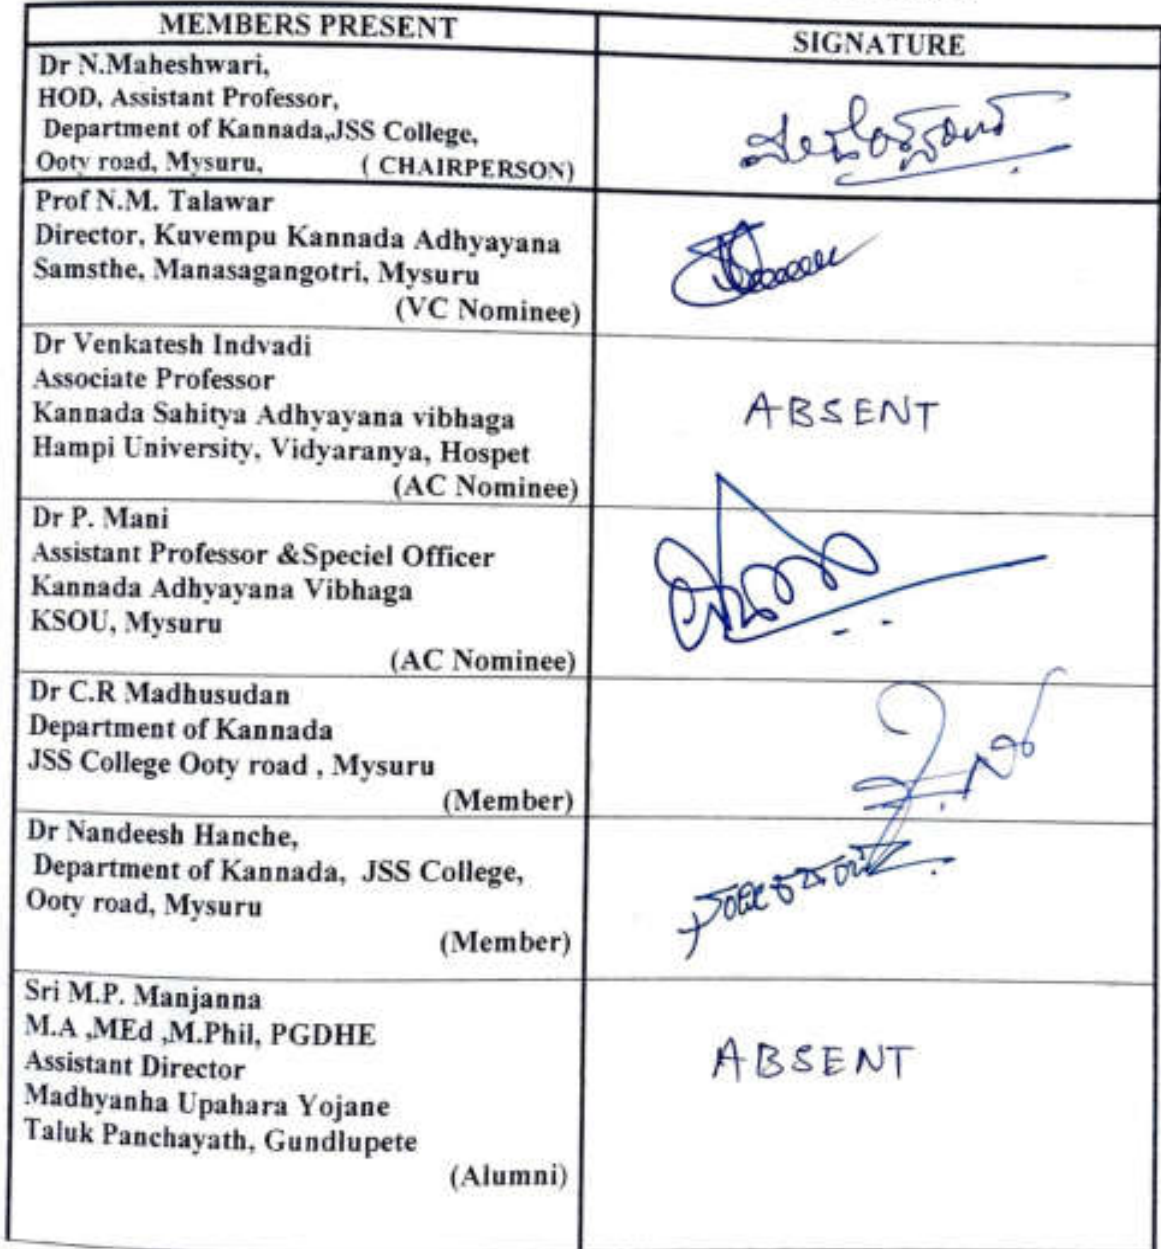 MEMBERS PRESENT
SIGNATURE
Dr N.Maheshwari,
HOD, Assistant Professor,
Department of Kannada,JSS College,
Ooty road, Mysuru, ( CHAIRPERSON)
Prof N.M. Talawar
Director, Kuvempu Kannada Adhyayana
Samsthe, Manasagangotri, Mysuru
(VC Nominee)
Dr Venkatesh Indvadi
Associate Professor
Kannada Sahitya Adhyayana vibhaga
Hampi University, Vidyaranya, Hospet
(AC Nominee)
ABSENT
Dr P. Mani
Assistant Professor &Speciel Officer
Kannada Adhyayana Vibhaga
KSOU, Mysuru
(AC Nominee)
Dr C.R Madhusudan
Department of Kannada
JSS College Ooty road , Mysuru
(Member)
Dr Nandeesh Hanche,
Department of Kannada, JSS College,
Ooty road, Mysuru
(Member)
Sri M.P. Manjanna
M.A ,MEd ,M.Phil, PGDHE
Assistant Director
Madhyanha Upahara Yojane
Taluk Panchayath, Gundlupete
(Alumni)
ABSENT